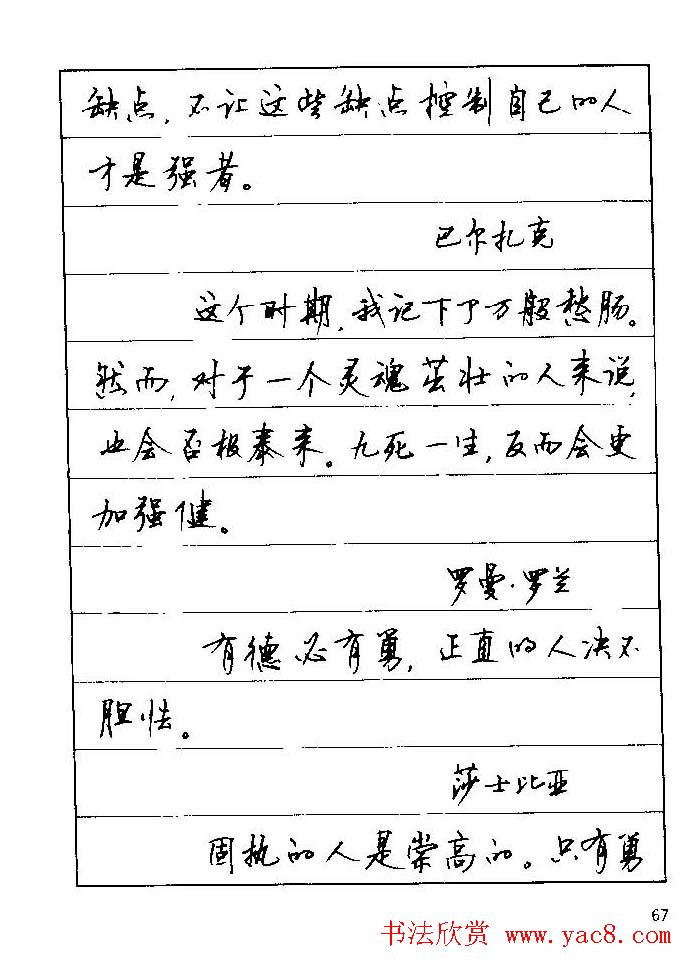 缺点，不让这些缺点控制自己的人
才是强者。
巴尔扎克
这个时期，我记下了万般愁肠。
然而，对于一个灵魂茁壮的人来说，
也会否极泰来。九死一生，反而会更
加强健。
罗曼·罗兰
有德必有勇，正直的人决不
胆怯。
莎士比亚
固执的人是崇高的。只有勇
67
书法欣赏 www.yac8.com